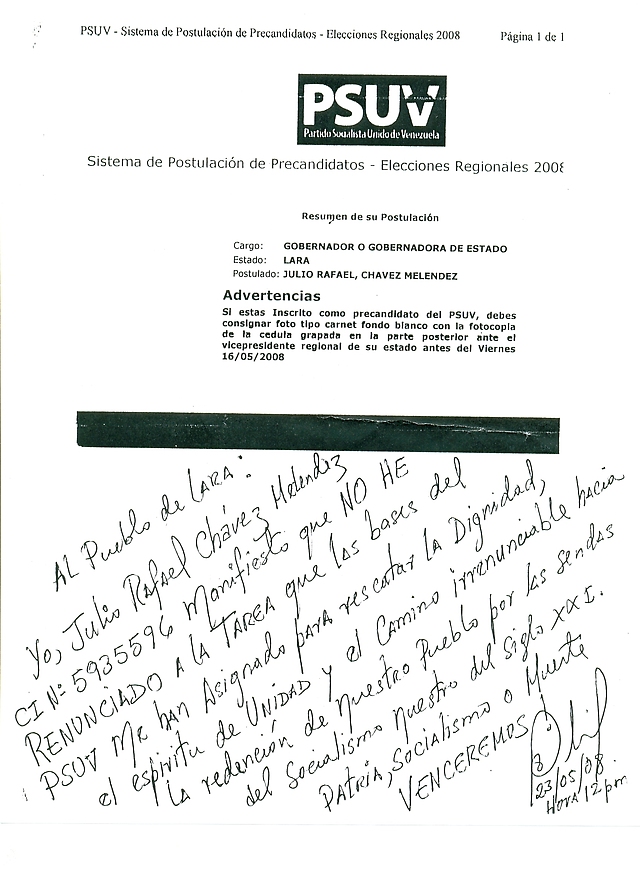 PSUV - Sistema de Postulación de Precandidatos - Elecciones Regionales 2008 Página 1 de 1
PSUV
Partido Socialista Unido de Venezuela
Sistema de Postulación de Precandidatos - Elecciones Regionales 2008
Resumen de su Postulación
Cargo: GOBERNADOR O GOBERNADORA DE ESTADO
Estado: LARA
Postulado: JULIO RAFAEL, CHAVEZ MELENDEZ
Advertencias
Si estas Inscrito como precandidato del PSUV, debes
consignar foto tipo carnet fondo blanco con la fotocopia
de la cedula grapada en la parte posterior ante el
vicepresidente regional de su estado antes del Viernes
16/05/2008
AL Pueblo de LARA:
Yo, Julio Rafael Chávez Melendez
CI Nº 5935596 Manifiesto que NO HE
RENUNCIADO A LA TAREA que las bases del
PSUV Me han Asignado para rescatar la Dignidad,
el espiritu de UNIDAD y el Camino irrenunciable hacia
la redención de Nuestro Pueblo por las sendas
del Socialismo Nuestro del Siglo XXI.
PATRIA, SOCIALISMO o Muerte
VENCEREMOS!
23/05/08
Hora 12 pm